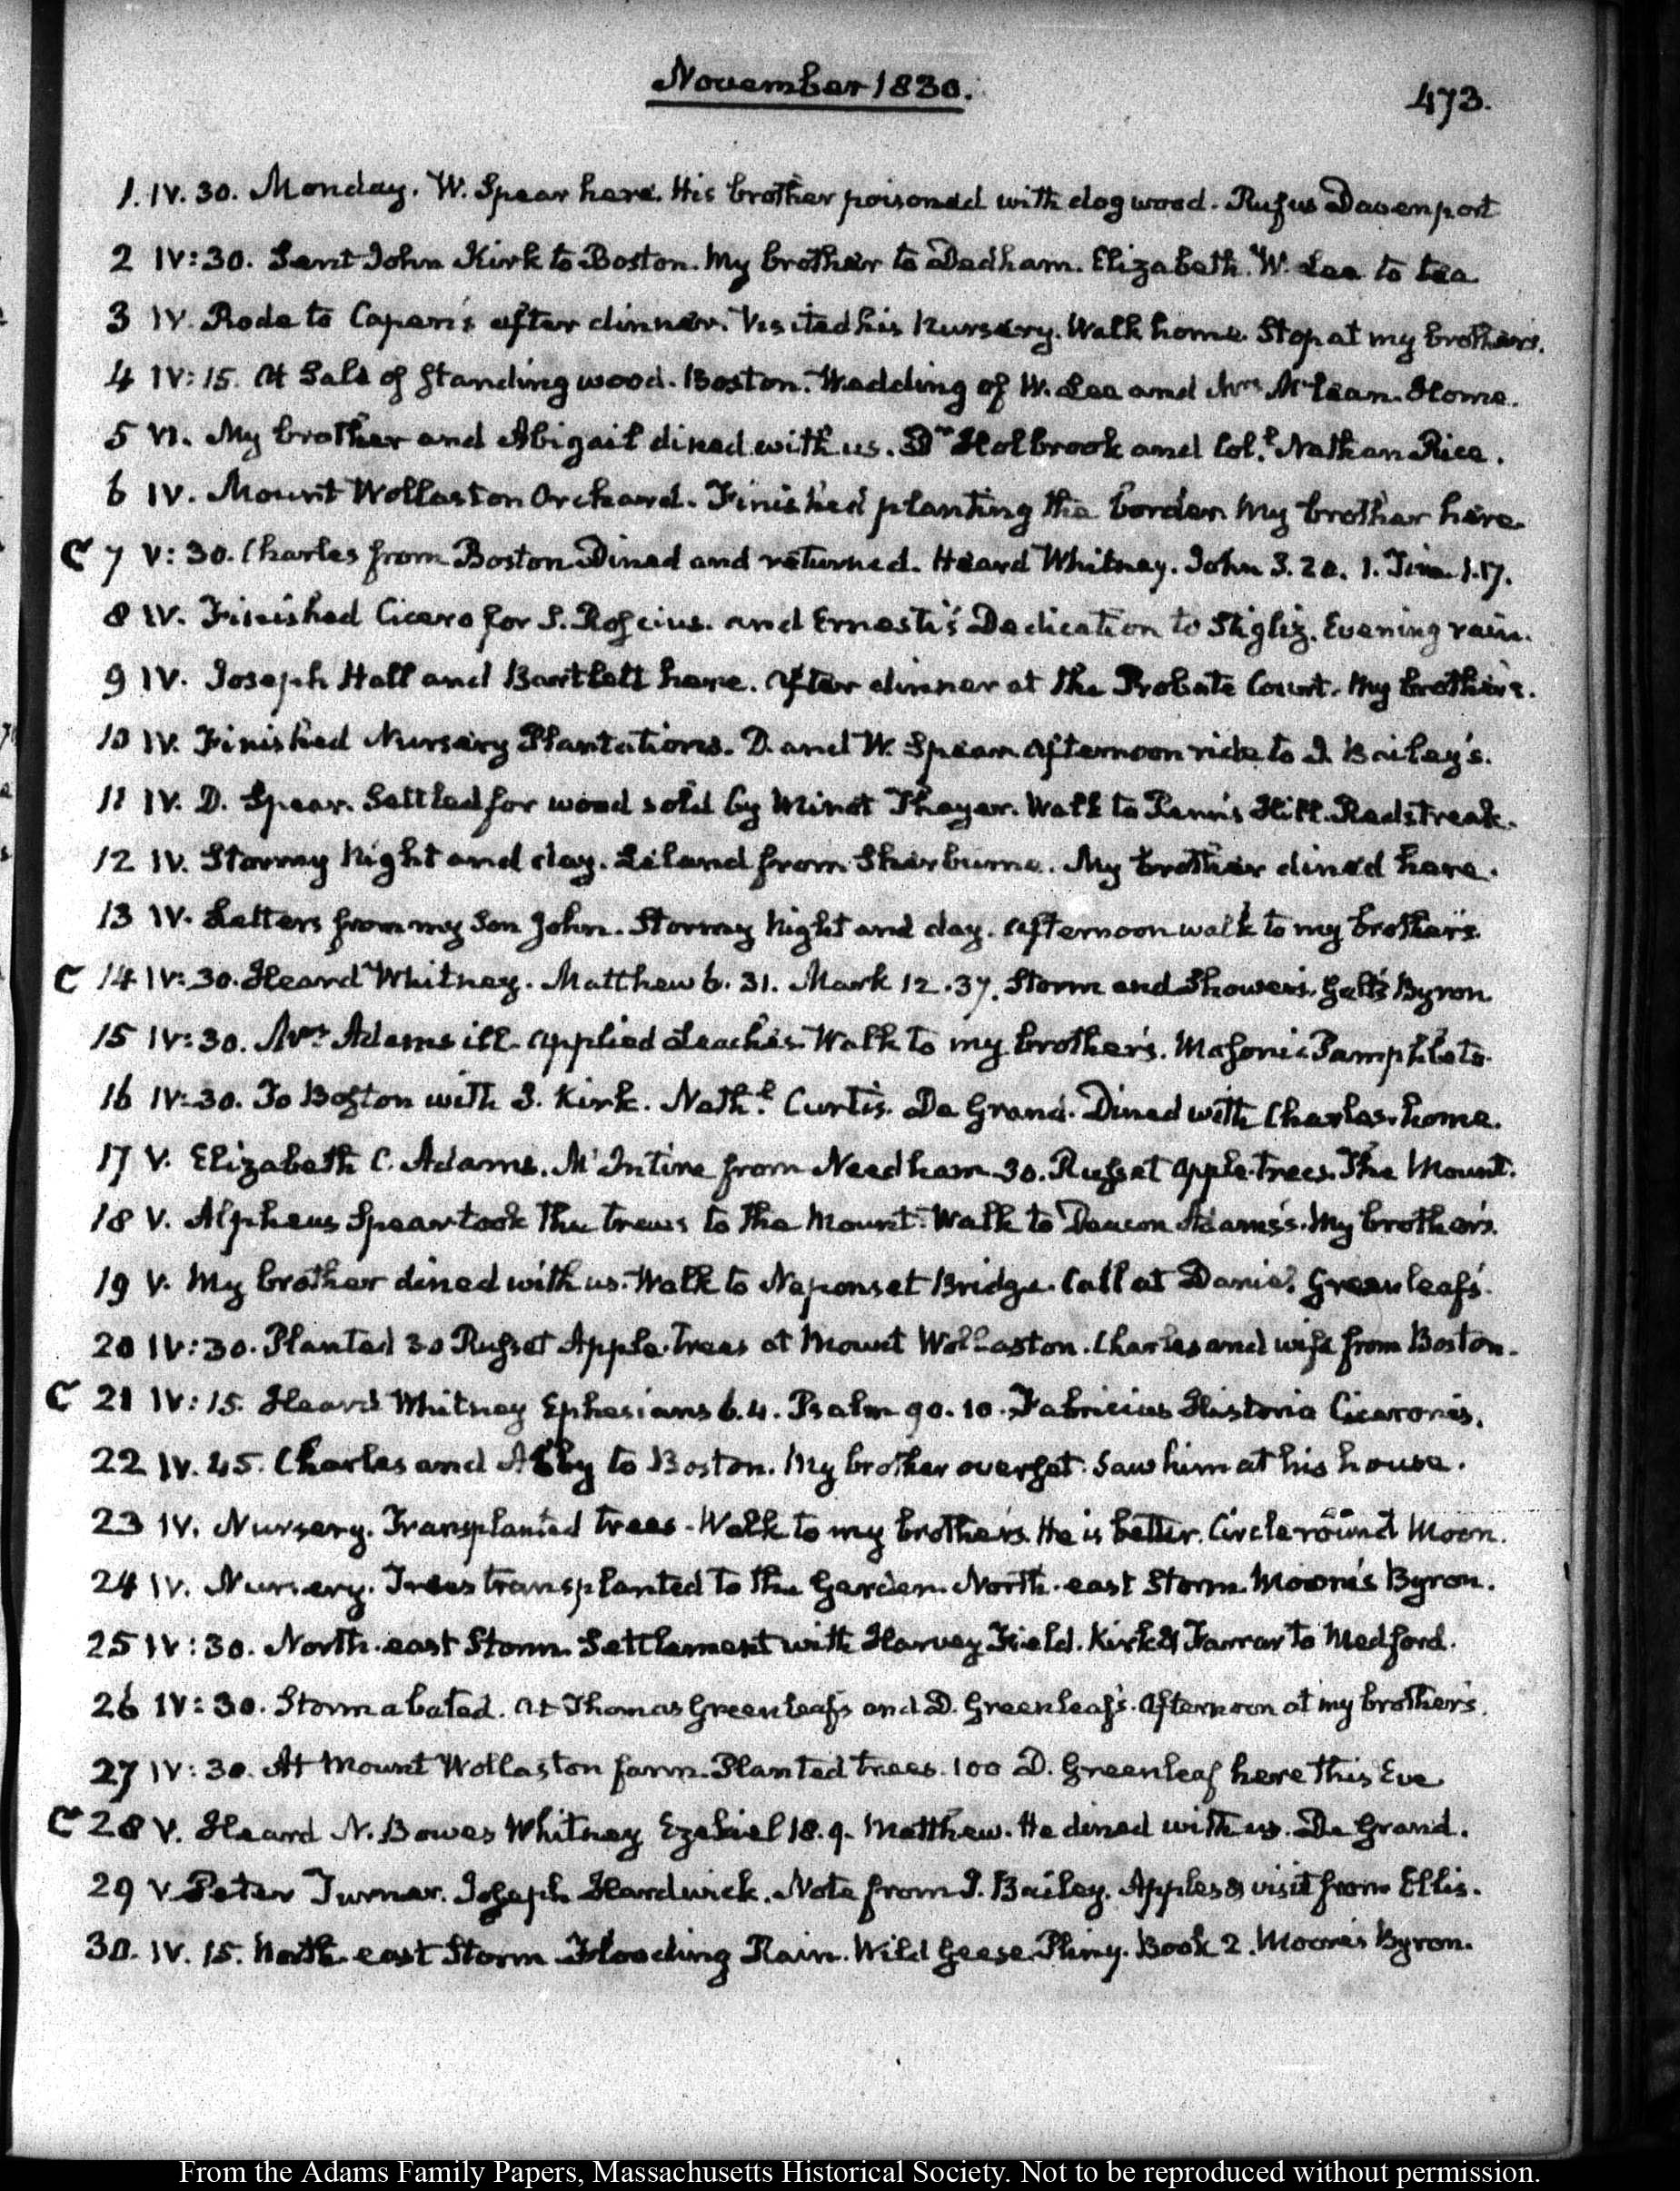 November 1830.
473.
1. IV. 30. Monday. W. Spear here. His brother poisoned with dog wood. Rufus Davenport
2 IV:30. Sent John Kirk to Boston. My brother to Dedham. Elizabeth. W. Lee to tea
3 IV. Rode to Capen's after dinner. Visited his Nursery. Walk home. Stop at my brother's.
4 IV:15. At Sale of standing wood. Boston. Wedding of W. Lee and Mrs McLean. Home.
5 VI. My brother and Abigail dined with us. Dr Holbrook and Coll. Nathan Rice.
6 IV. Mount Wollaston Orchard. Finished planting the border. My brother here.
C 7 V:30. Charles from Boston Dined and returned. Heard Whitney. John 3. 20. 1. Tim. 1.17.
8 IV. Finished Cicero for S. Roscius. and Ernesti's Dedication to Stigliz. Evening rain.
9 IV. Joseph Hall and Bartlett here. After dinner at the Probate Court. My brother's.
10 IV. Finished Nursery Plantations. D. and W. Spear. Afternoon ride to J. Bailey's.
11 IV. D. Spear. Settled for wood sold by Minot Thayer. Walk to Penn's Hill. Redstreak.
12 IV. Stormy Night and day. Leland from Sherburne. My brother dined here.
13 IV. Letters from my Son John. Stormy Night and day. Afternoon walk to my brother's.
C 14 IV:30. Heard Whitney. Matthew 6. 31. Mark 12.37. Storm and Showers. Galt's Byron
15 IV:30. Mrs Adams ill. Applied Leeches. Walk to my brother's. Masonic Pamphlets.
16 IV:30. To Boston with J. Kirk. Nathl. Curtis. De Grand. Dined with Charles. home.
17 V. Elizabeth C. Adams. McIntire from Needham. 30. Russet apple-trees. The Mount.
18 V. Alpheus Spear took the trees to the Mount. Walk to Deacon Adams's. My brother's.
19 V. My brother dined with us. Walk to Neponset Bridge. Call at Daniel Greenleaf's.
20 IV:30. Planted 30 Russet Apple-trees at Mount Wollaston. Charles and wife from Boston.
C 21 IV:15. Heard Whitney Ephesians 6.4. Psalm 90.10. Fabricius Historia Ciceronis.
22 IV. 45. Charles and Abby to Boston. My brother overset. Saw him at his house.
23 IV. Nursery. Transplanted trees. Walk to my brother's. He is better. Circle round Moon.
24 IV. Nursery. Trees transplanted to the Garden. North-east Storm. Moore's Byron.
25 IV:30. North-east Storm. Settlement with Harvey Field. Kirk & Farrar to Medford.
26 IV:30. Storm abated. At Thomas Greenleaf's and D. Greenleaf's. Afternoon at my brother's.
27 IV:30. At Mount Wollaston farm. Planted trees. 100 D. Greenleaf here this Eve
C 28 V. Heard N. Bowes Whitney Ezekiel 18.9. Matthew. He dined with us. De Grand.
29 V. Peter Turner. Joseph Hardwick. Note from J. Bailey. Apples & visit from Ellis.
30. IV. 15. North-east Storm. Flooding Rain. Wild Geese. Pliny. Book 2. Moore's Byron.
From the Adams Family Papers, Massachusetts Historical Society. Not to be reproduced without permission.